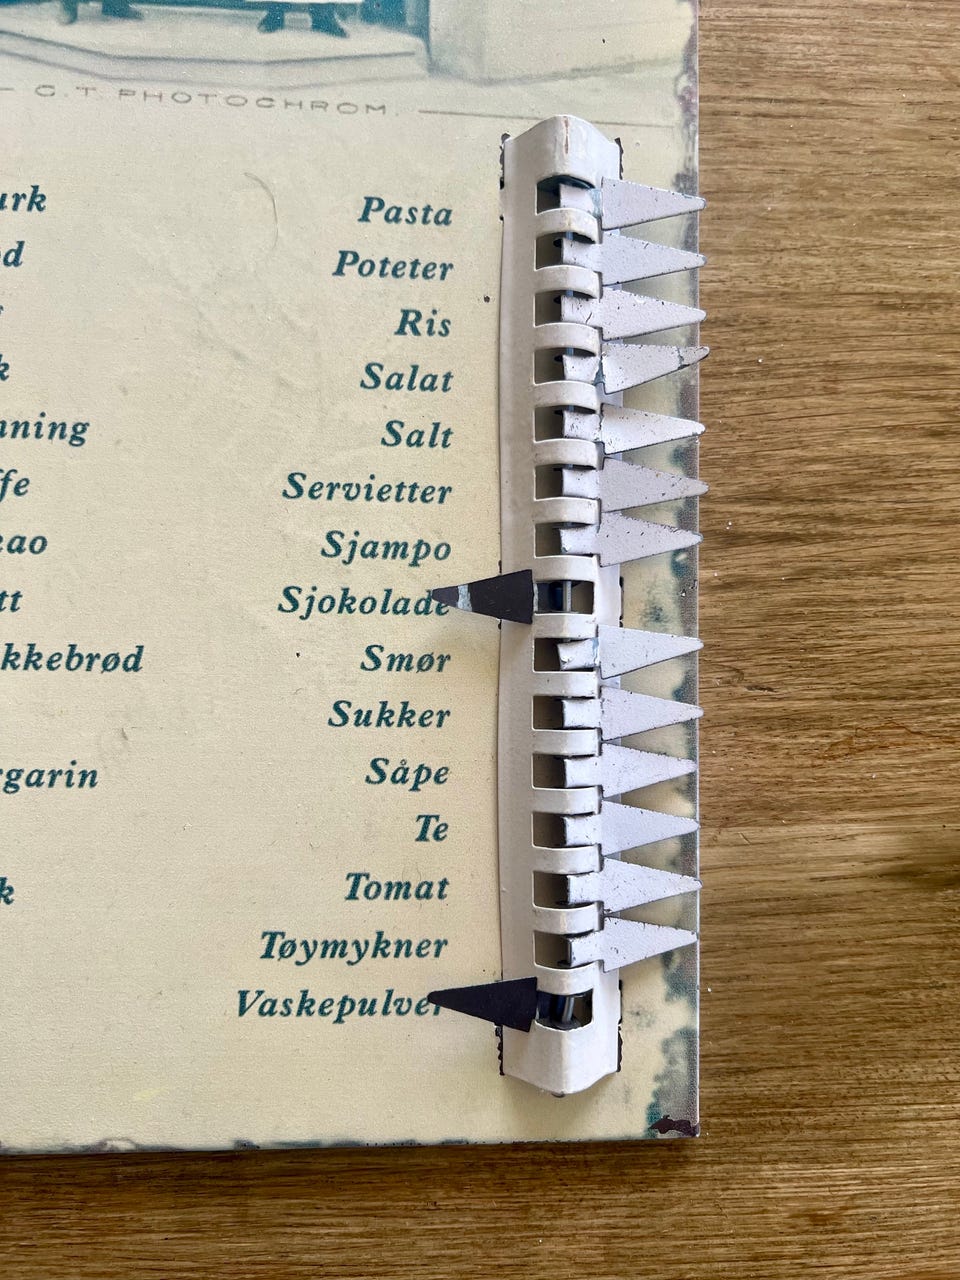 C.T. PHOTOCHROM.
urk
d
k
nning
ffe
kao
tt
kkebrød
rgarin
k
Pasta
Poteter
Ris
Salat
Salt
Servietter
Sjampo
Sjokolade
Smør
Sukker
Såpe
Te
Tomat
Tøymykner
Vaskepulver